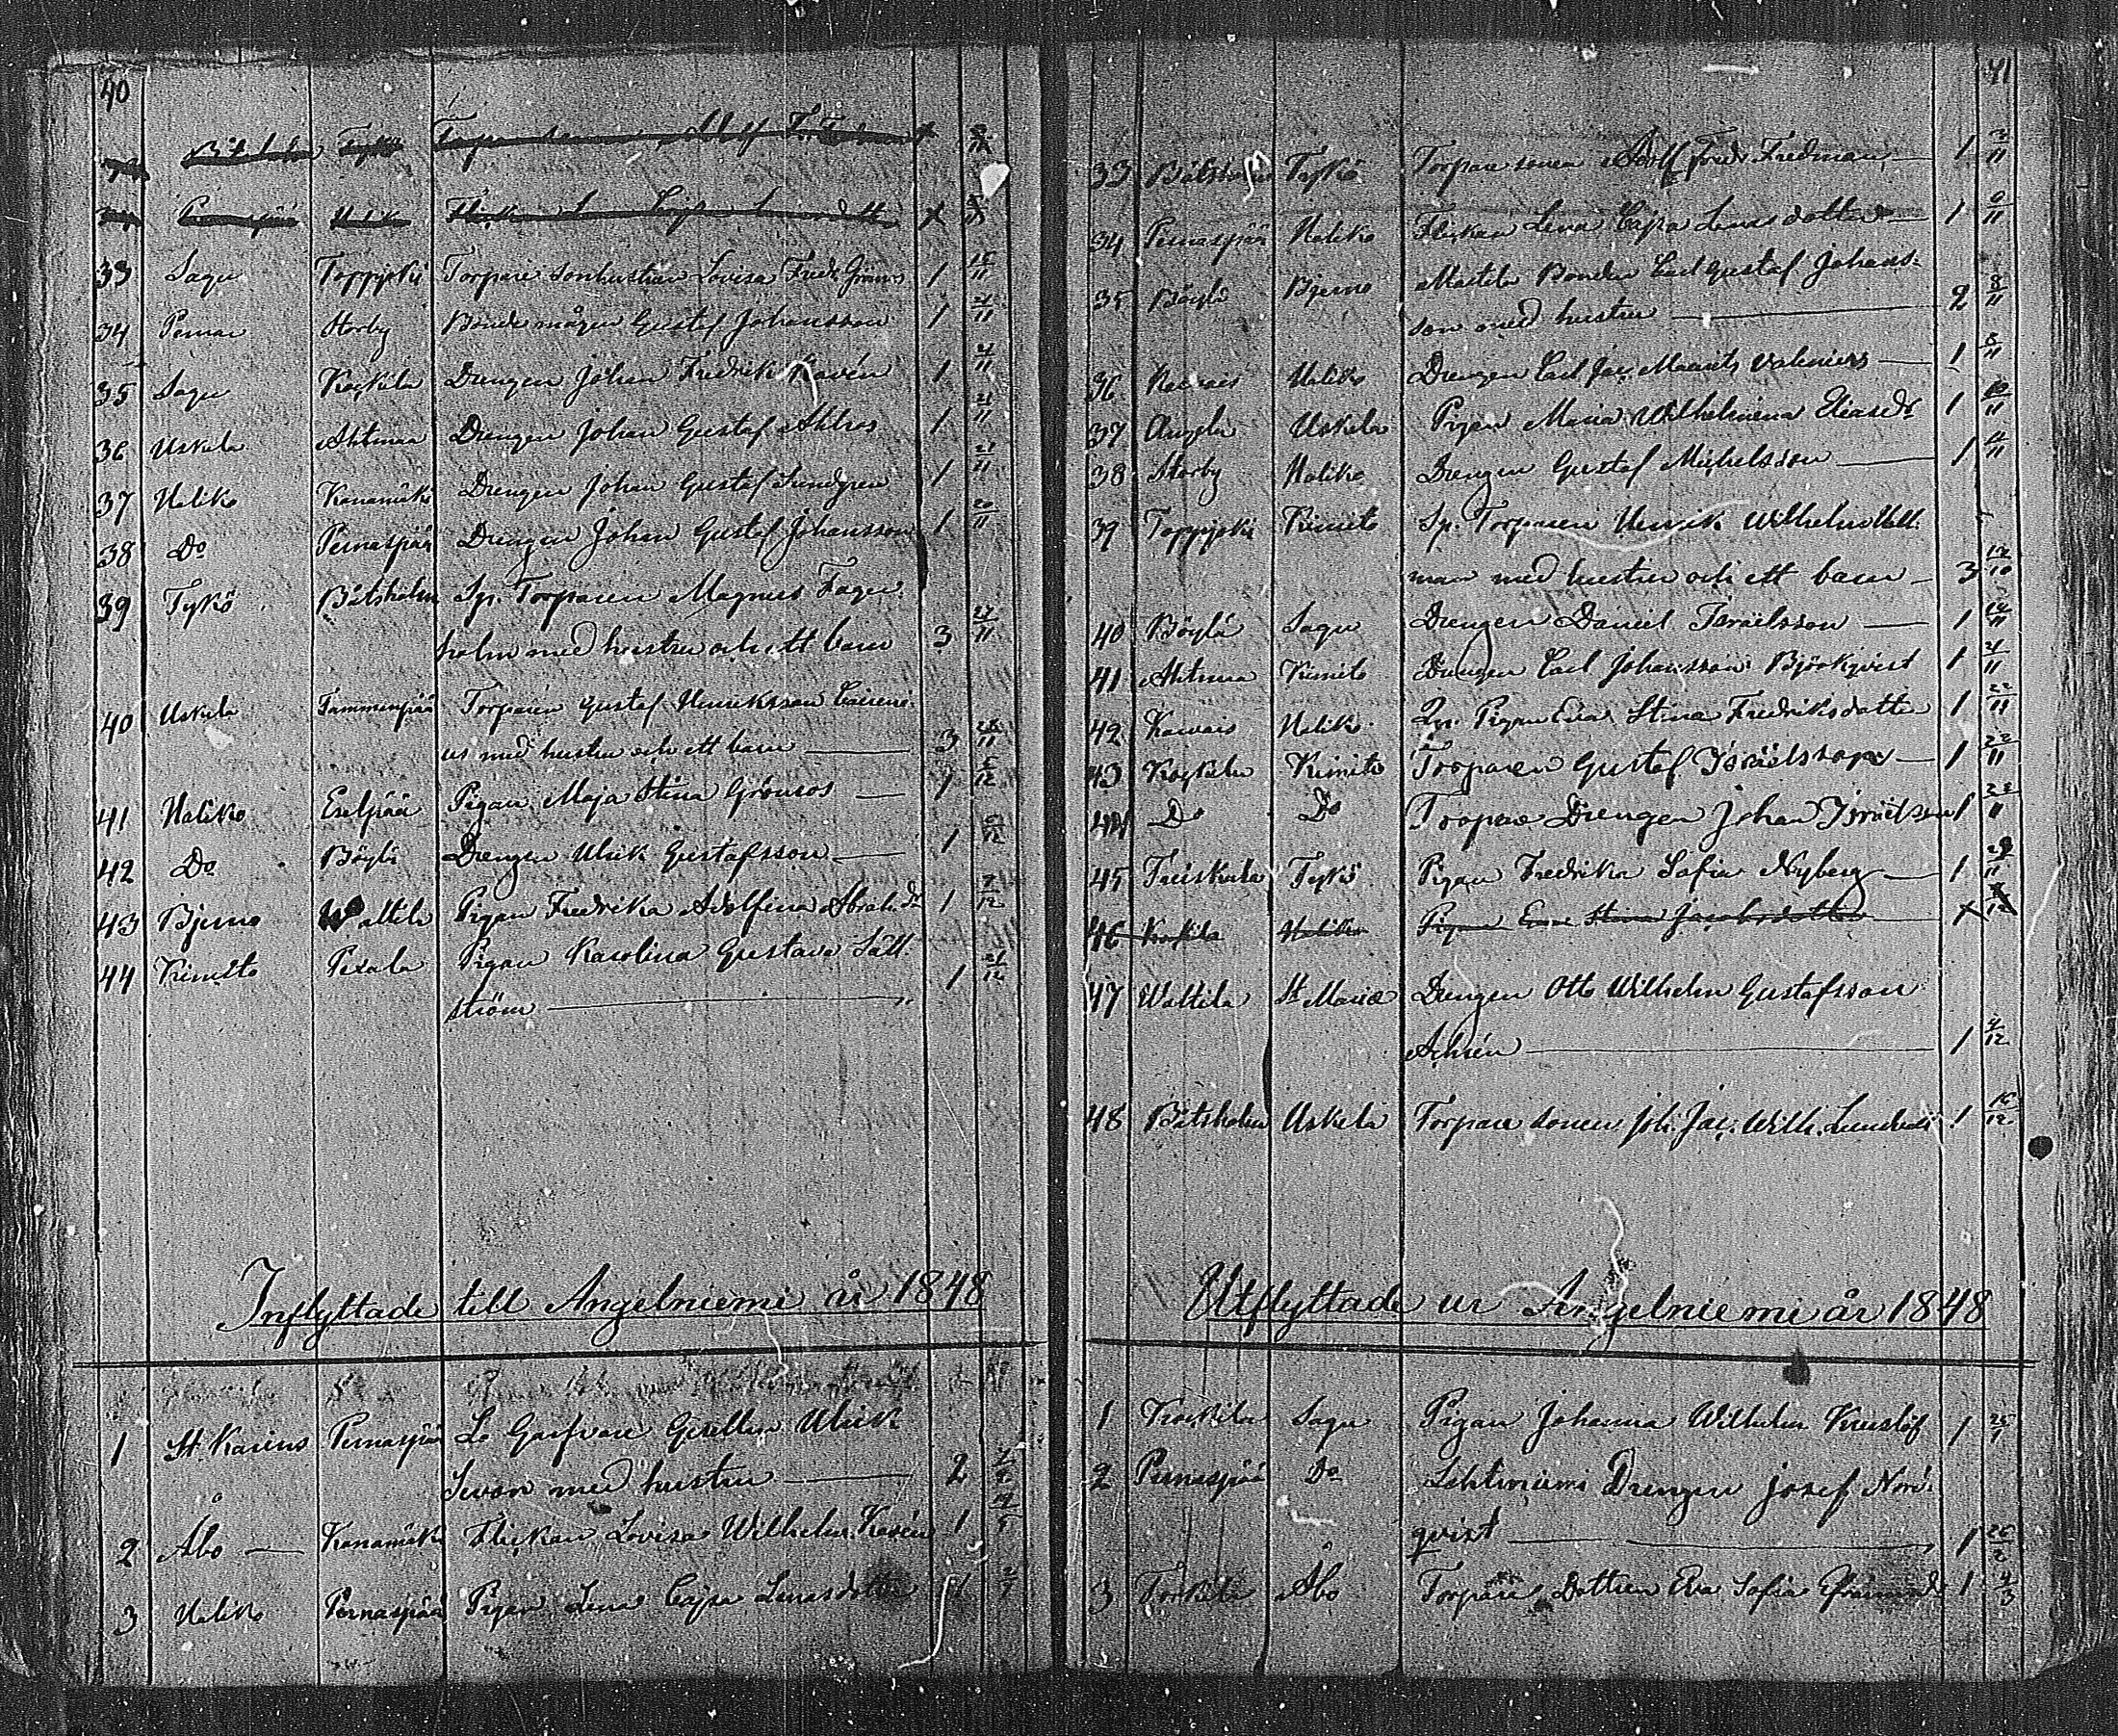 40
33 Sagu Toppjoki Torpare sonhustrun Lovisa Fredr. Grönros 1 15/11
34 Pernar Storby Bonde mågen Gustaf Johansson 1 21/11
35 Sagu Kockila Drengen Johan Fredrik Kavén 1 21/11
36 Uskela Ahtmaa Drengen Johan Gustaf Ahlros 1 21/11
37 Haliko Kanamäki Drengen Johan Gustaf Sundgren 1 21/11
38 Do Pernaspää Drengen Johan Gustaf Johansson 1 20/11
39 Tykö Båtsholm Sp. Torparen Magnus Fager-
holm med hustru och ett barn 3 27/11
40 Uskela Tammenpää Torparen Gustaf Henriksson
us med hustru och ett barn 3 28/11
41 Haliko Eselpää Pigan Maja Stina Grönros 1 5/12
42 Do Böylä Drengen Ulrik Gustafsson 1 /12
43 Bjerno Wattila Pigan Fredrika Adolfina Abrah.dr 1 7/12
44 Kimito Pexala Pigan Karolina Gustava Säll-
ström 1 21/12
Inflyttade till Angelniemi år 1848
1 St. Karins Pernaspää Lo Garfvare Gesellen Ulrik
med hustru 2
2 Åbo Kanamäki Flickan Lovisa Wilhelm. Kasén 1 19/5
3 Haliko Pernaspää Pigan Lena Cajsa Lenasdotter 1
41
33 Båtsholm Tykö Torpare sonen Adolf Fredr. Fredman 1 3/11
34 Pernaspää Haliko Flickan Lena Cajsa Lenasdotter 1 6/11
35 Böylä Bjerno Mattila Bonden Carl Gustaf Johans-
son med hustru 2 8/11
36 Karvais Haliko Drengen Carl Jac. Maurits Valenius 1 8/11
37 Angela Uskela Pigan Maria Wilhelmina Eliasdr 1 10/11
38 Storby Haliko Drengen Gustaf Michelsson 1 11/11
39 Toppjoki Kimito Sp. Torparen Henrik Wilhelm Hell-
man med hustru och ett barn 3 12/10
40 Böylä Sagu Drengen Daniel Israelsson 1 14/11
41 Ahtmaa Kimito Drengen Carl Johansson Björkqvist 1 21/11
42 Karvais Haliko Qv. Pigan Eva Stina Fredriksdotter 1 22/11
43 Kockila Kimito Torparen Gustaf Israelsson 1 22/11
44 Do Do Torpare Drengen Johan Israelsson 1 22/11
45 Freiskula Tykö Pigan Fredrika Sofia Nyberg 1 29/11
46 Kockila Haliko Pigan Eva Stina Jacobsdotter
47 Wattila St Mariæ Drengen Otto Wilhelm Gustafsson
Achrén 1 4/12
48 Båtsholm Uskela Torpare sonen Joh. Jac. Wilh. 1 15/12
Utflyttade ur Angelniemi år 1848
1 Kockila Sagu Pigan Johanna Wilhelm. Kruslöf 1 25/1
2 Pernaspää Do Lehtiniemi Drengen Josef Nord-
qvist 1 25/2
3 Torkila Åbo Torpare Dottren Eva Sofia 1 4/3